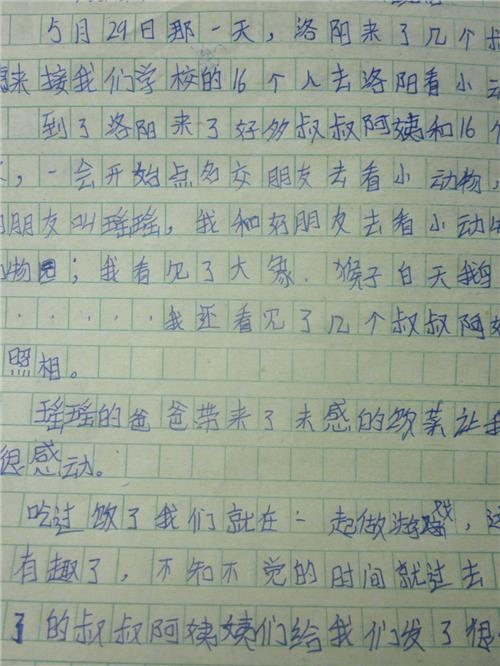 5月29日那一天，洛阳来了几个叔
来接我们学校的16个人去洛阳看小动
到了洛阳来了好多叔叔阿姨和16个
，一会开始点名交朋友去看小动物，
朋友叫瑶瑶，我和好朋友去看小动
物园；我看见了大象．猴子白天鹅
．．．．．．我还看见了几个叔叔阿姨
照相。
瑶瑶的爸爸带来了未感的饭菜让我
很感动。
吃过饭了我们就在一起做游戏，这
有趣了，不知不觉的时间就过去
了的叔叔阿姨姨们给我们发了很